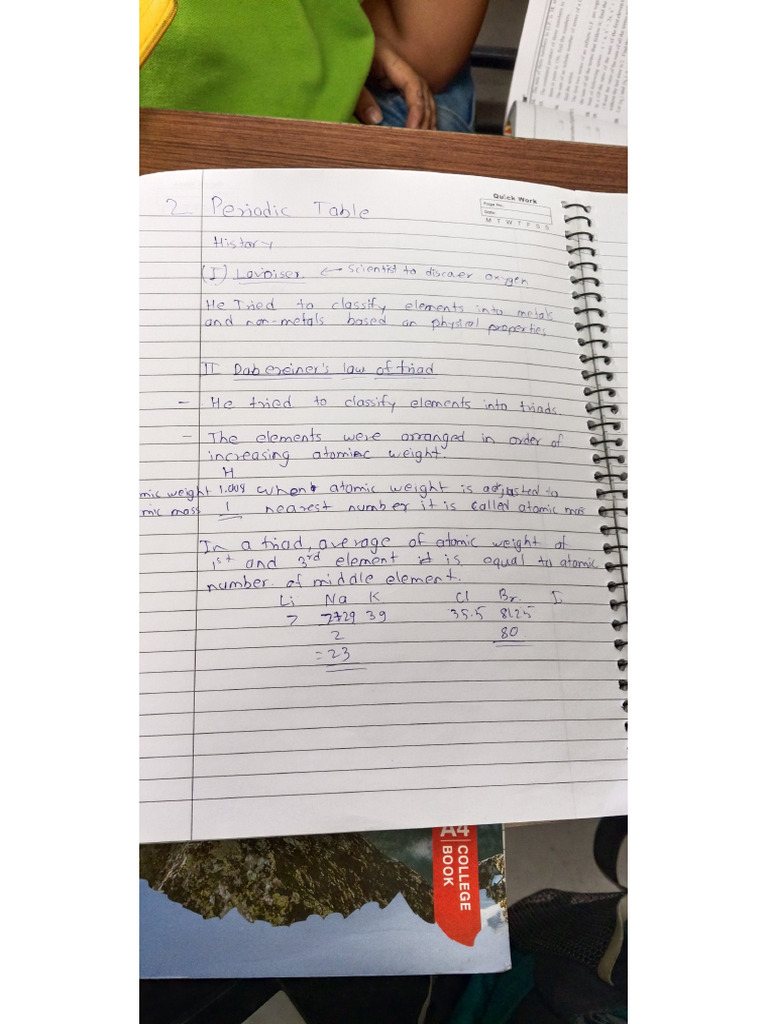 Quick Work
Page No.:
Date:
M T W T F S S
2 Periodic Table
History
(I) Lavoiser ← scientist to discover oxygen
He Tried to classify elements into metals
and non-metals based on physical properties
II Dabereiner's law of triad
- He tried to classify elements into triads.
- The elements were arranged in order of
increasing atomic weight.
H
mic weight 1.008 when atomic weight is adjusted to
mic mass 1 nearest number it is called atomic mass
In a triad, average of atomic weight of
1st and 3rd element is equal to atomic
number of middle element.
Li Na K Cl Br. I
7 7+29 39 35.5 81.25
2 80
= 23
A4
COLLEGE
BOOK